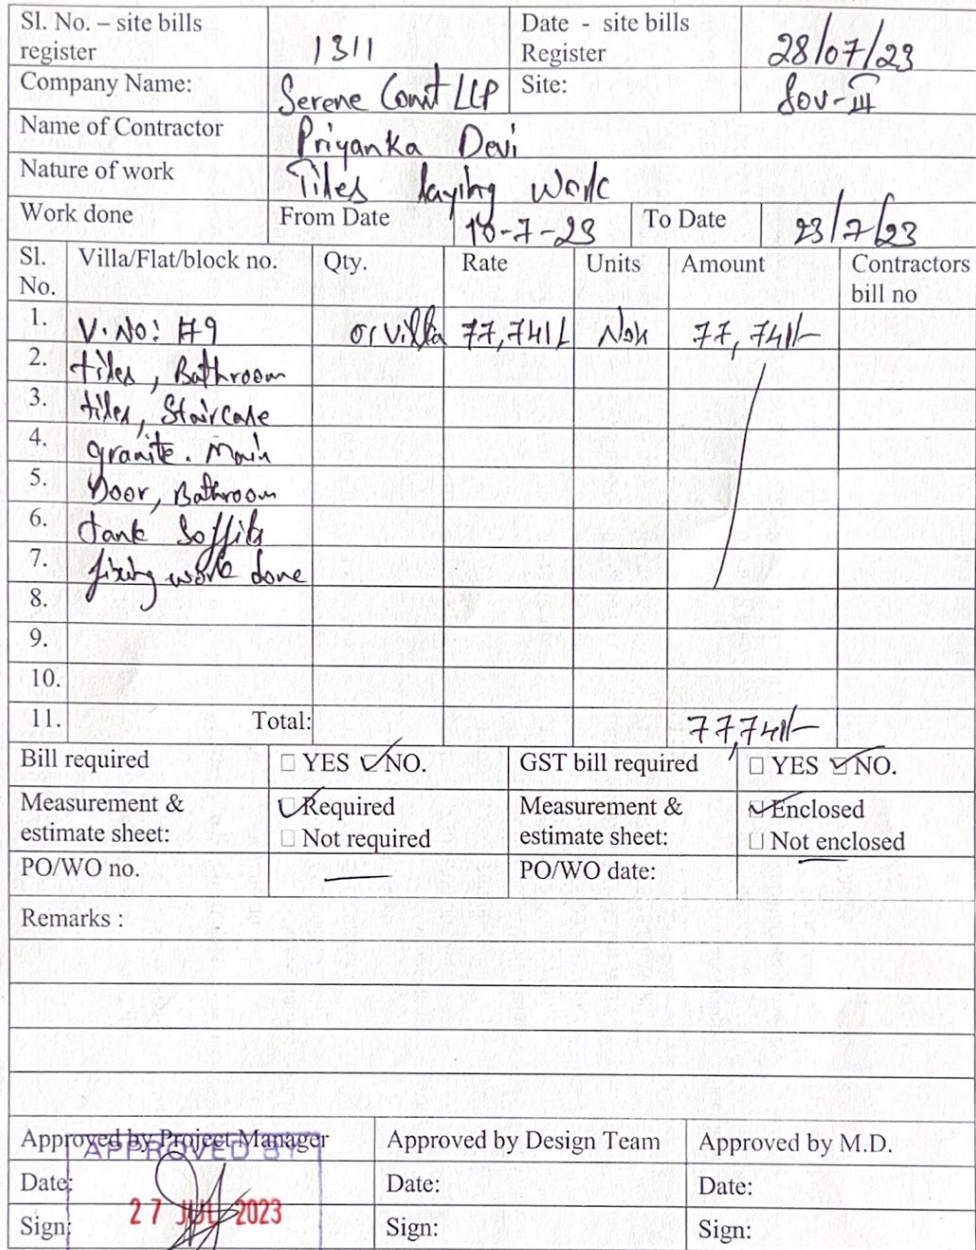 Sl. No. – site bills register 1311 Date - site bills Register 28/07/23
Company Name: Serene Const LLP Site: Sov-III
Name of Contractor Priyanka Devi
Nature of work Tiles laying work
Work done From Date 18-7-23 To Date 23/7/23
Sl. No. Villa/Flat/block no. Qty. Rate Units Amount Contractors bill no
1. V.No: #9 01 villa 77,741/- Nos 77,741/-
2. tiles, Bathroom
3. tiles, Staircase
4. granite. Main
5. Door, Bathroom
6. tank Soffits
7. fixing work done
8.
9.
10.
11. Total: 77,741/-
Bill required □ YES ☑ NO. GST bill required □ YES ☑ NO.
Measurement & estimate sheet: ☑ Required □ Not required Measurement & estimate sheet: ☑ Enclosed □ Not enclosed
PO/WO no. — PO/WO date:
Remarks :
Approved by Project Manager Approved by Design Team Approved by M.D.
APPROVED BY
Date: Date: Date:
27 JUL 2023
Sign: Sign: Sign: